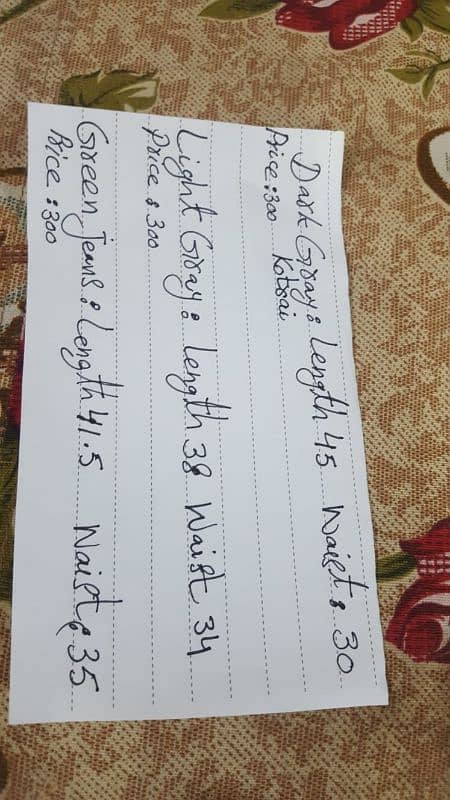 Dark Gray: Length 45 Waist: 30
Price: 300 Kotrai
Light Gray: Length 38 Waist 34
Price: 300
Green Jeans: Length 41.5 Waist: 35
Price: 300